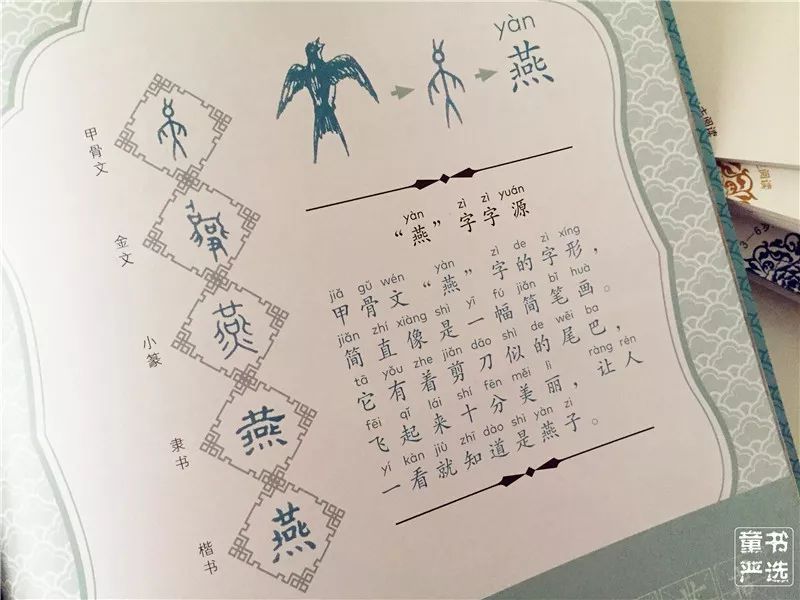 yàn
燕
甲骨文
金文
小篆
隶书
楷书
yàn zì zì yuán
“燕”字字源
jiǎ gǔ wén yàn zì de zì xíng
甲骨文“燕”字的字形，
jiǎn zhí xiàng shì yì fú jiǎn bǐ huà
简直像是一幅简笔画。
tā yǒu zhe jiǎn dāo shì de wěi ba
它有着剪刀似的尾巴，
fēi qǐ lái shí fēn měi lì ràng rén
飞起来十分美丽，让人
yí kàn jiù zhī dào shì yàn zi
一看就知道是燕子。
阅读
阅读
3—6岁
童书
严选